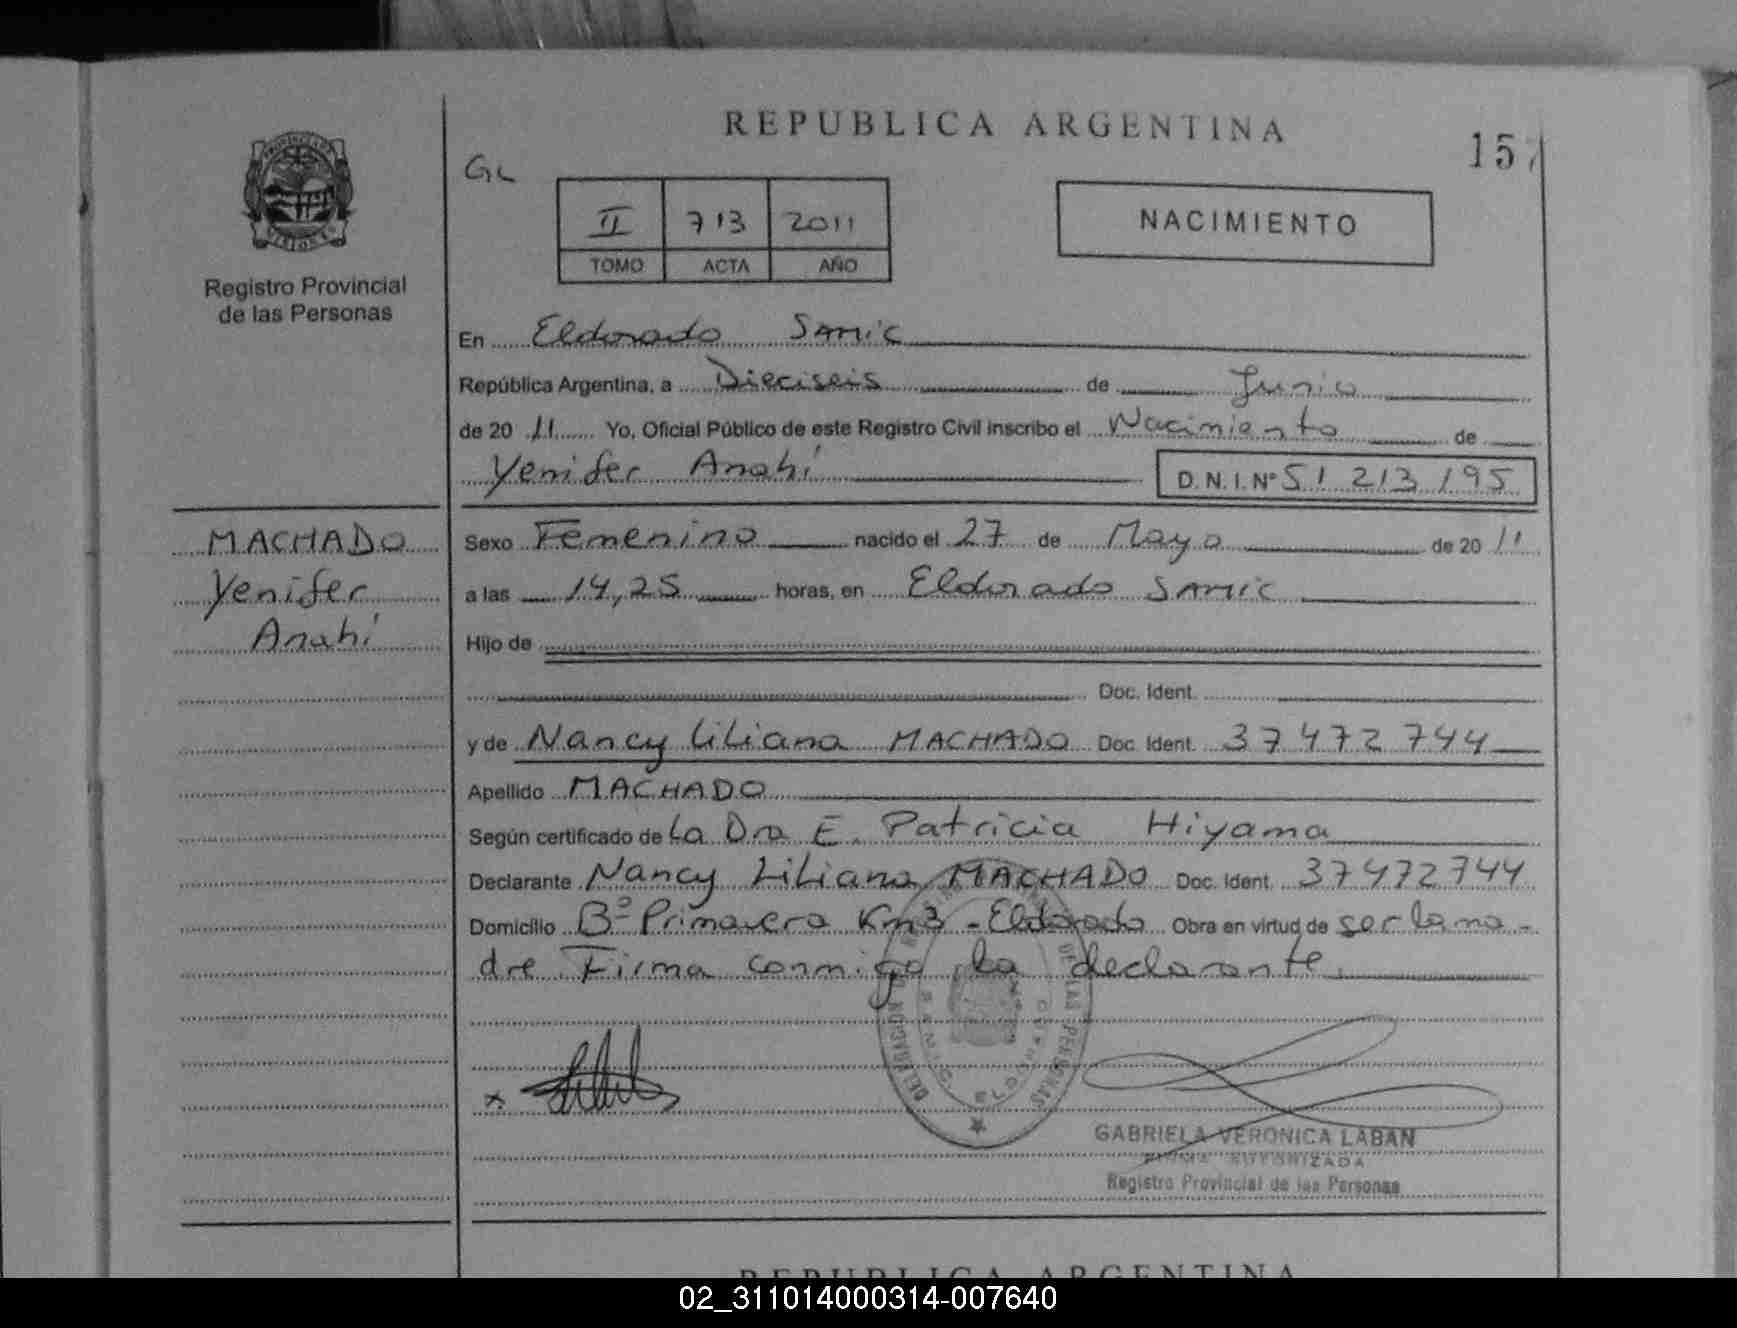 REPUBLICA ARGENTINA
157
GL
II 713 2011
TOMO ACTA AÑO
NACIMIENTO
PROVINCIA DE
MISIONES
Registro Provincial
de las Personas
En Eldorado SAMIC
República Argentina, a Dieciseis de Junio
de 20 11 Yo, Oficial Público de este Registro Civil inscribo el Nacimiento de
Yenifer Anahí D.N.I.Nº 51 213 195
MACHADO
Yenifer
Anahí
Sexo Femenino nacido el 27 de Mayo de 20 11
a las 14,25 horas, en Eldorado SAMIC
Hijo de
Doc. Ident.
y de Nancy Liliana MACHADO Doc. Ident. 37472744
Apellido MACHADO
Según certificado de La Dra E. Patricia Hiyama
Declarante Nancy Liliana MACHADO Doc. Ident. 37472744
Domicilio Bº Primavera Km3 - Eldorado Obra en virtud de ser la ma-
dre Firma conmigo la declarante.
DE LAS PERSONAS
x
GABRIELA VERONICA LABAN
FIRMA AUTORIZADA
Registro Provincial de las Personas
REPUBLICA ARGENTINA
02_311014000314-007640